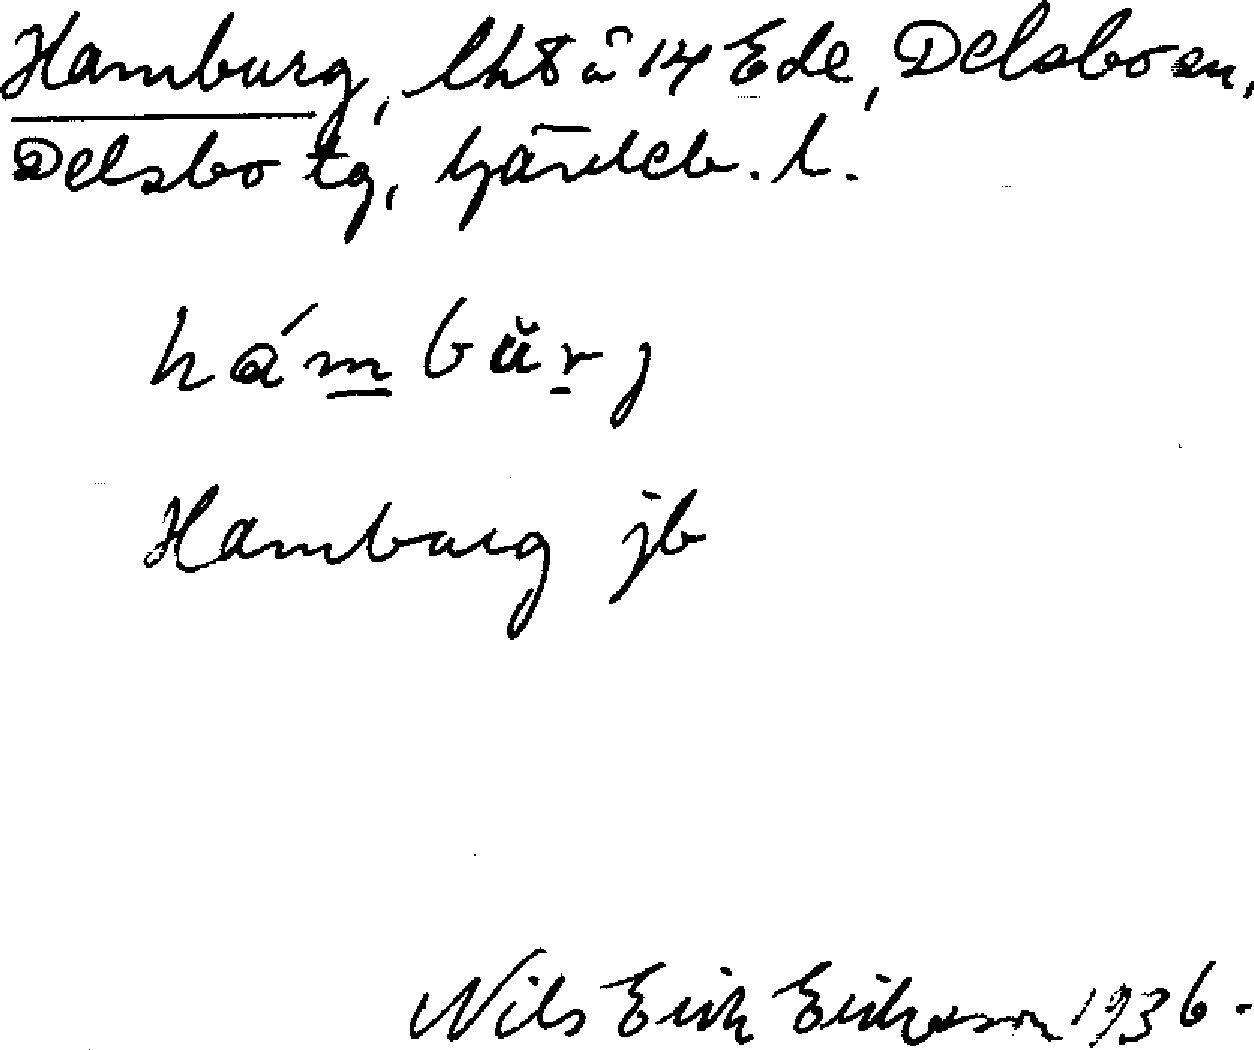 Hamburg, lht å 14 Ede, Delsbo sn,
Delsbo tg, Gävleb. l.
hámbŭrj
Hamburg jb
Nils Erik Erikson 1936.